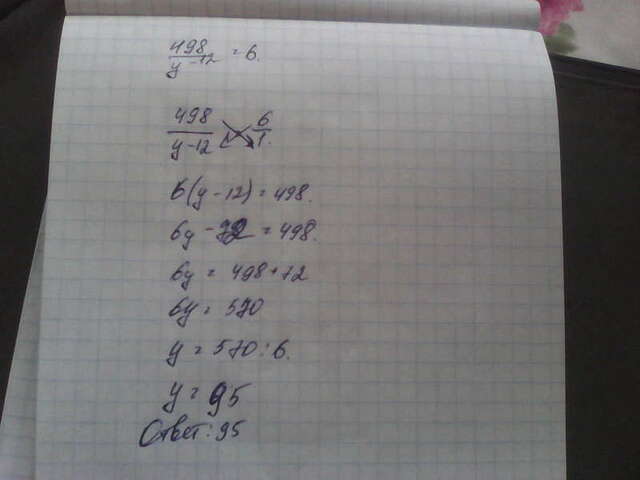 498
y-12 = 6.
498 6
y-12 1.
6(y-12)=498.
6y-72=498.
6y=498+72
6y=570
y=570:6.
y=95
Ответ: 95